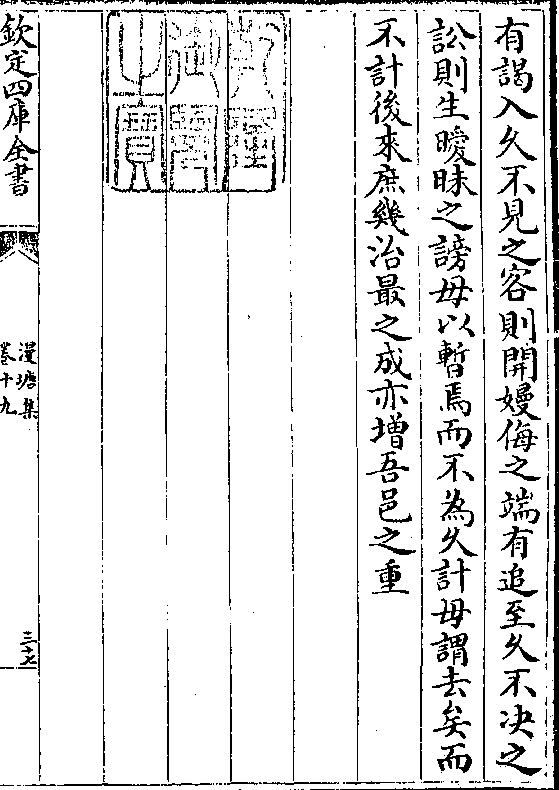 有謁入久不見之客則開嫚侮之端有追至久不决之
訟則生曖昧之謗毋以暫焉而不為久計毋謂去矣而
不計後來庶幾治最之成亦增吾邑之重
乾隆
御覽
之寶
欽定四庫全書
漫塘集
卷十九
三十七